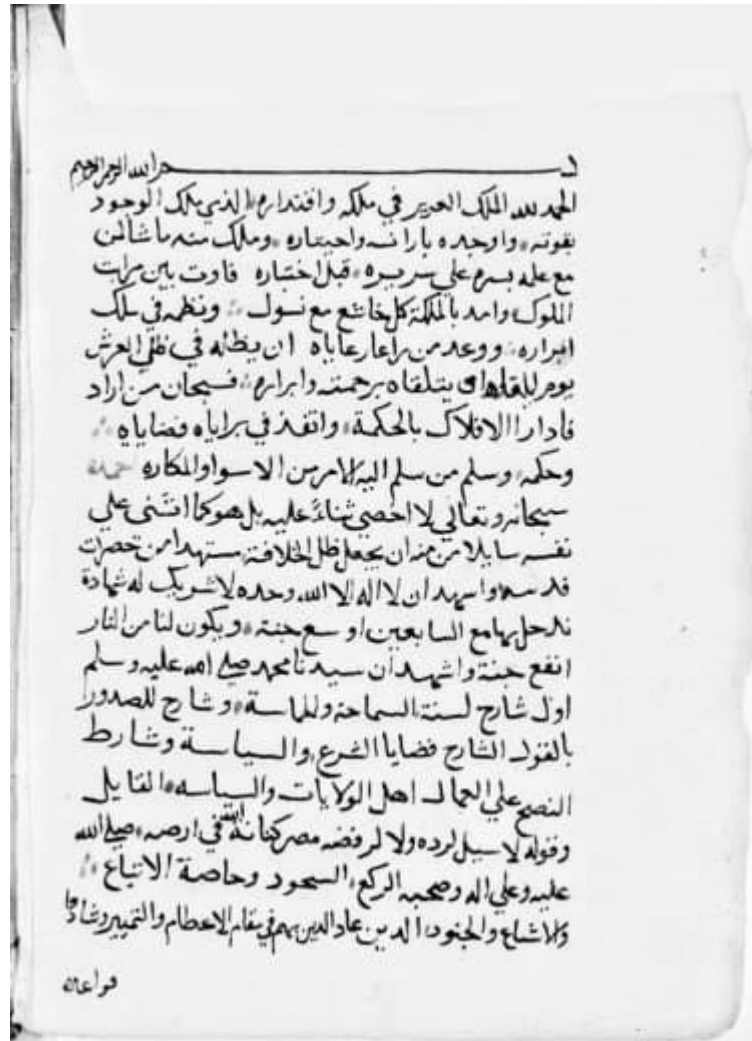 بسم الله الرحمن الرحيم
الحمد لله الملك العزيز في ملكه واقتداره الذي ملك الوجود
بقوته واوجده واختياره وملك منه ما شا لمن
مع علمه بسره علي سريره قبل اختباره فاوت بين مراتب
الملوك وامد بالملكة كل خاشع ونظمه في سلك
ابراره ووعد من راعا رعاياه ان يظله في ظل العرش
يوم يتلقاه برحمته وابراره فسبحان من اراد
فادارا الافلاك بالحكمة وانفذ في براياه قضاياه
وحكمه وسلم من سلم اليه الامر من الاسوا والمكاره
سبحانه وتعالي لا احصي ثناءً عليه بل هو كما اثنى علي
نفسه سايلا من منه ان يجعل ظل الخلافة من حضرات
قدسه واشهد ان لا اله الا الله وحده لا شريك له شهادة
ندخل بها مع السابقين اوسع جنة ويكون لنا من النار
انفع جنة واشهد ان سيدنا محمد صلى الله عليه وسلم
اول شارح لسنة السماحة والحماسة وشارح للصدور
بالقول الشارح قضايا الشرع والسياسة وشارط
النصح علي العمال اهل الولايات والسياسه القايل
وقوله لا سبيل لرده ولا لرفضه مصر كنانة الله في ارضه صلى الله
عليه وعلي اله وصحبه الركع السجود وخاصة الاتباع
والاشياع والجنود الذين عاد الدين بهم في مقام الاعظام والتمييز وشادوا
قواعده